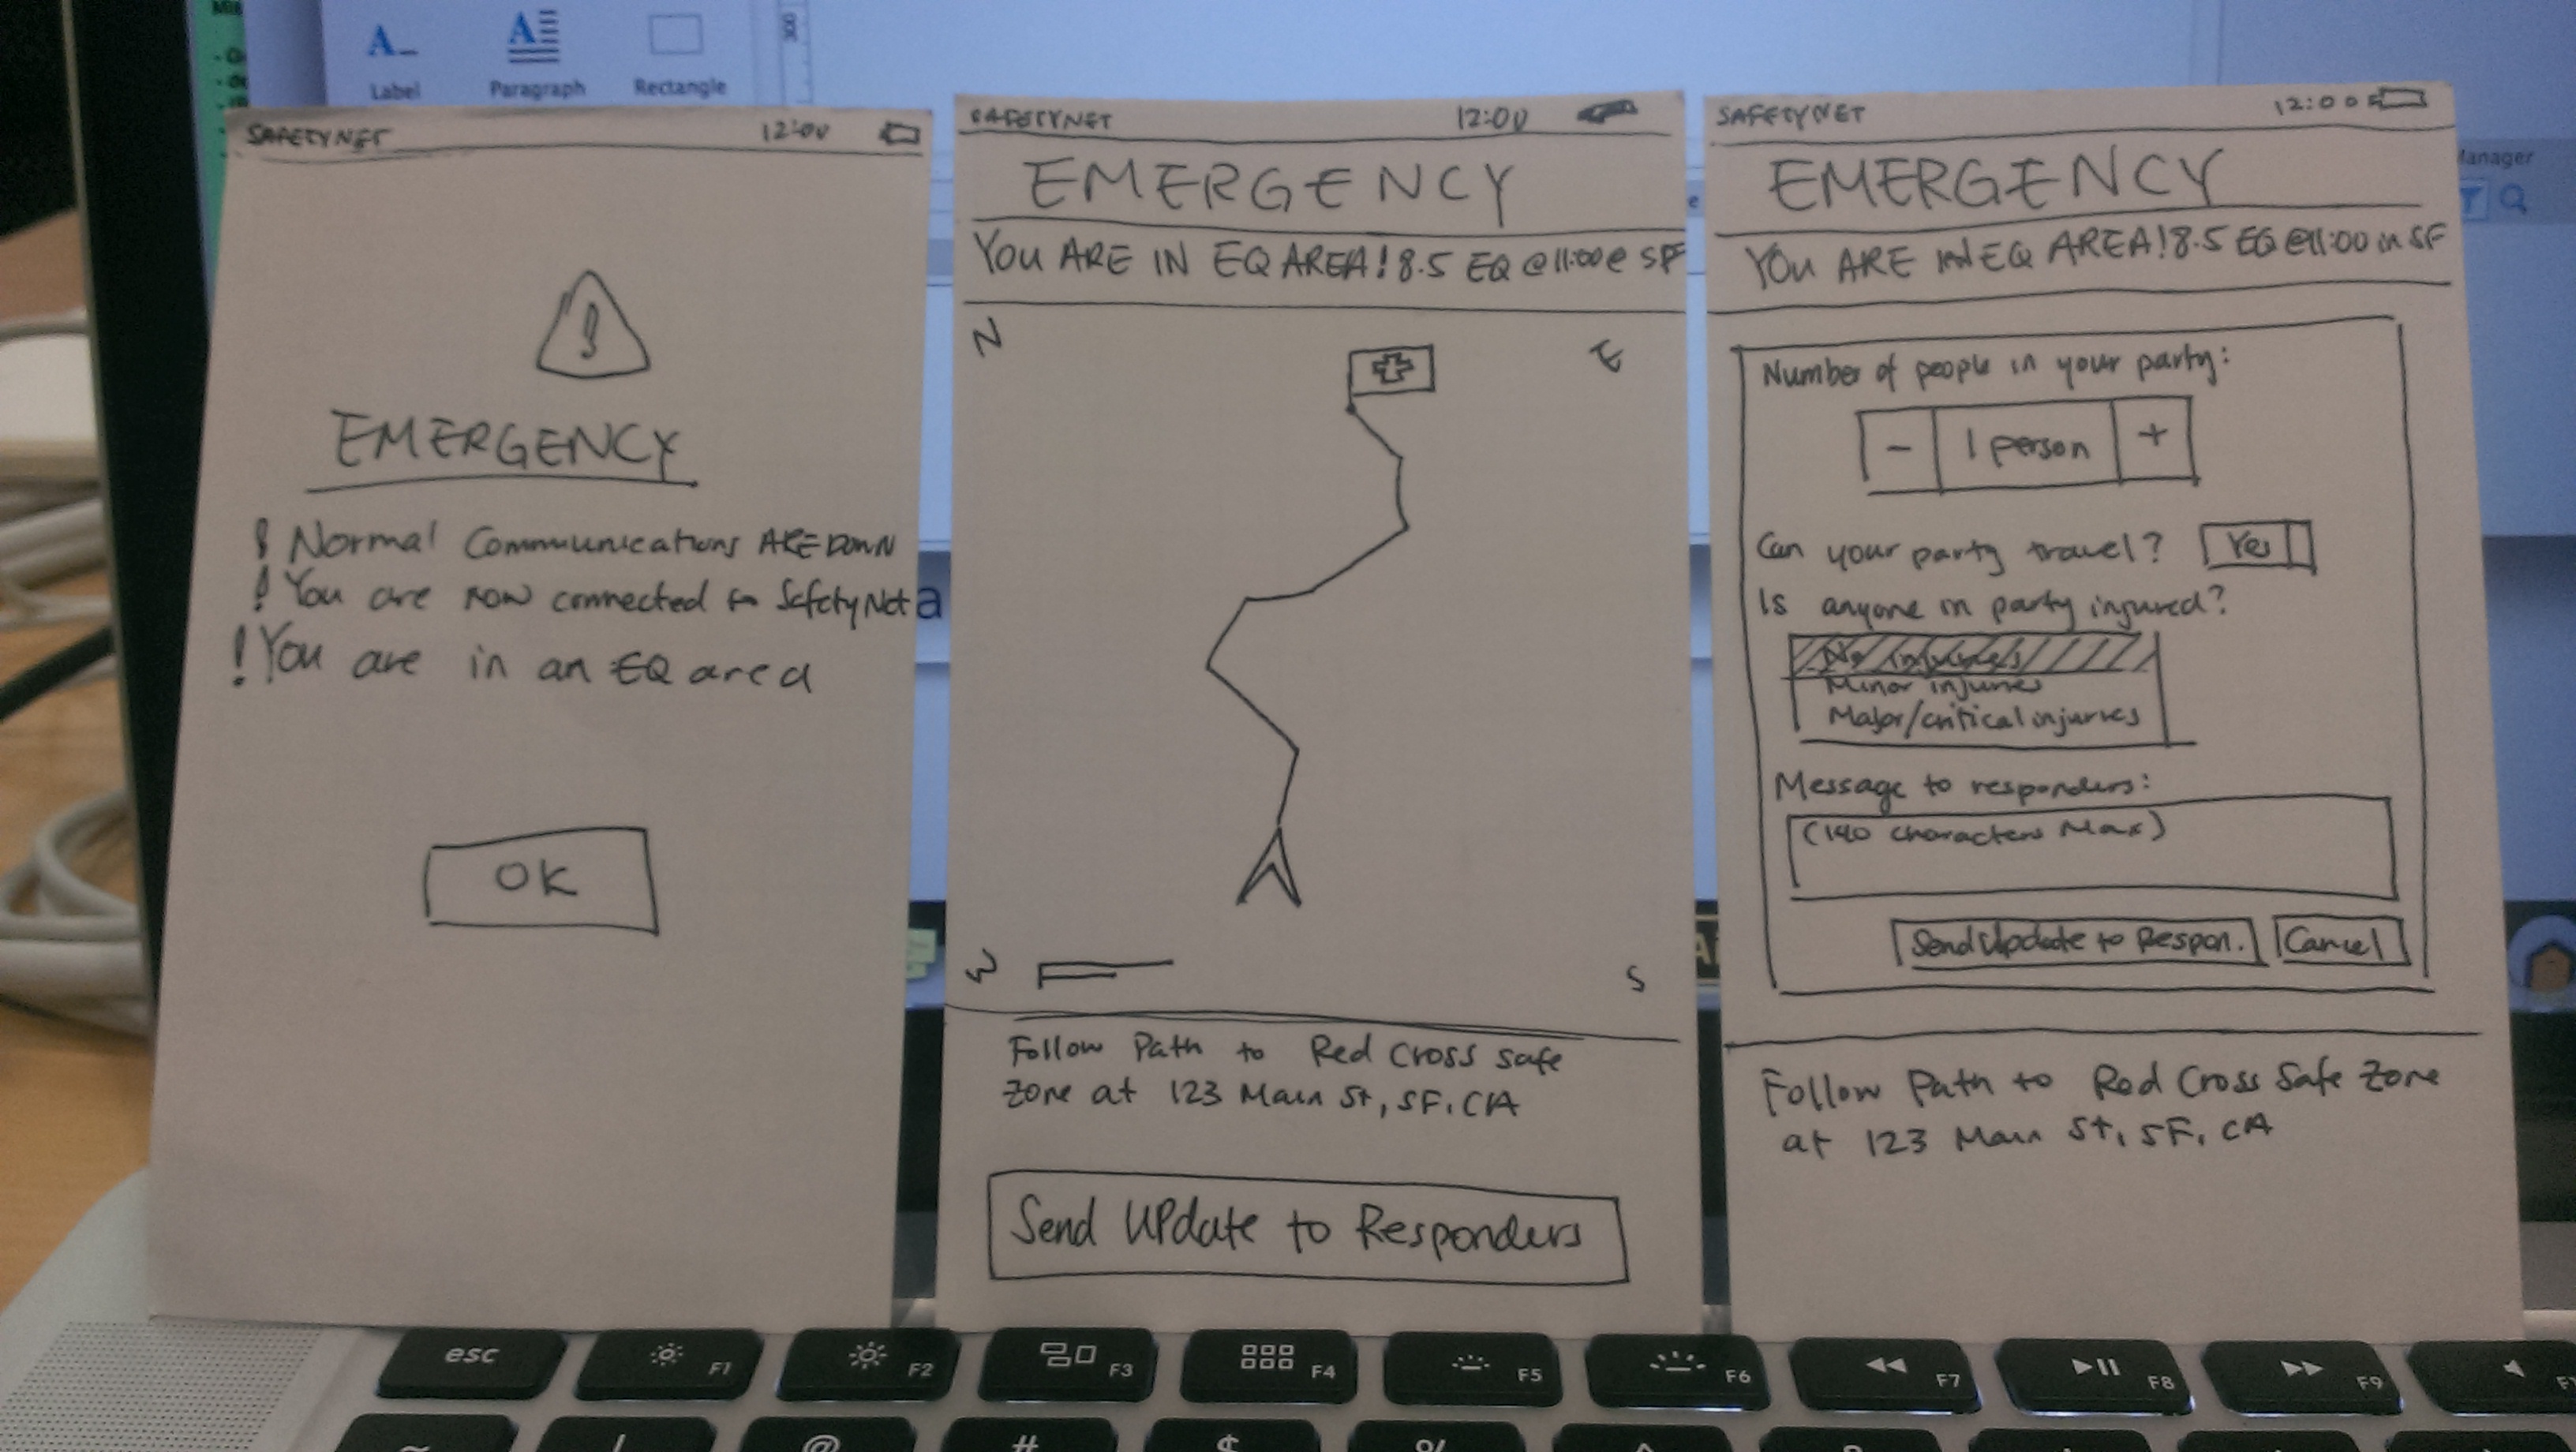 Label
Paragraph
Rectangle
300
SAFETYNET 12:00
EMERGENCY
! Normal Communications ARE DOWN
! You are now connected to SafetyNet
! You are in an EQ area
OK
a
SAFETYNET 12:00
EMERGENCY
YOU ARE IN EQ AREA! 8.5 EQ @ 11:00 @ SF
N
E
W
S
Follow Path to Red Cross safe
zone at 123 Main St, SF, CA
Send Update to Responders
SAFETYNET 12:00
EMERGENCY
YOU ARE IN EQ AREA! 8.5 EQ @ 11:00 in SF
Number of people in your party:
- 1 person +
Can your party travel? Yes
Is anyone in party injured?
No injuries
Minor injuries
Major/critical injuries
Message to responders:
(140 characters Max)
Send Update to Respon. Cancel
Follow Path to Red Cross Safe Zone
at 123 Main St, SF, CA
esc F1 F2 F3 F4 F5 F6 F7 F8 F9
~ ! @ # $ %